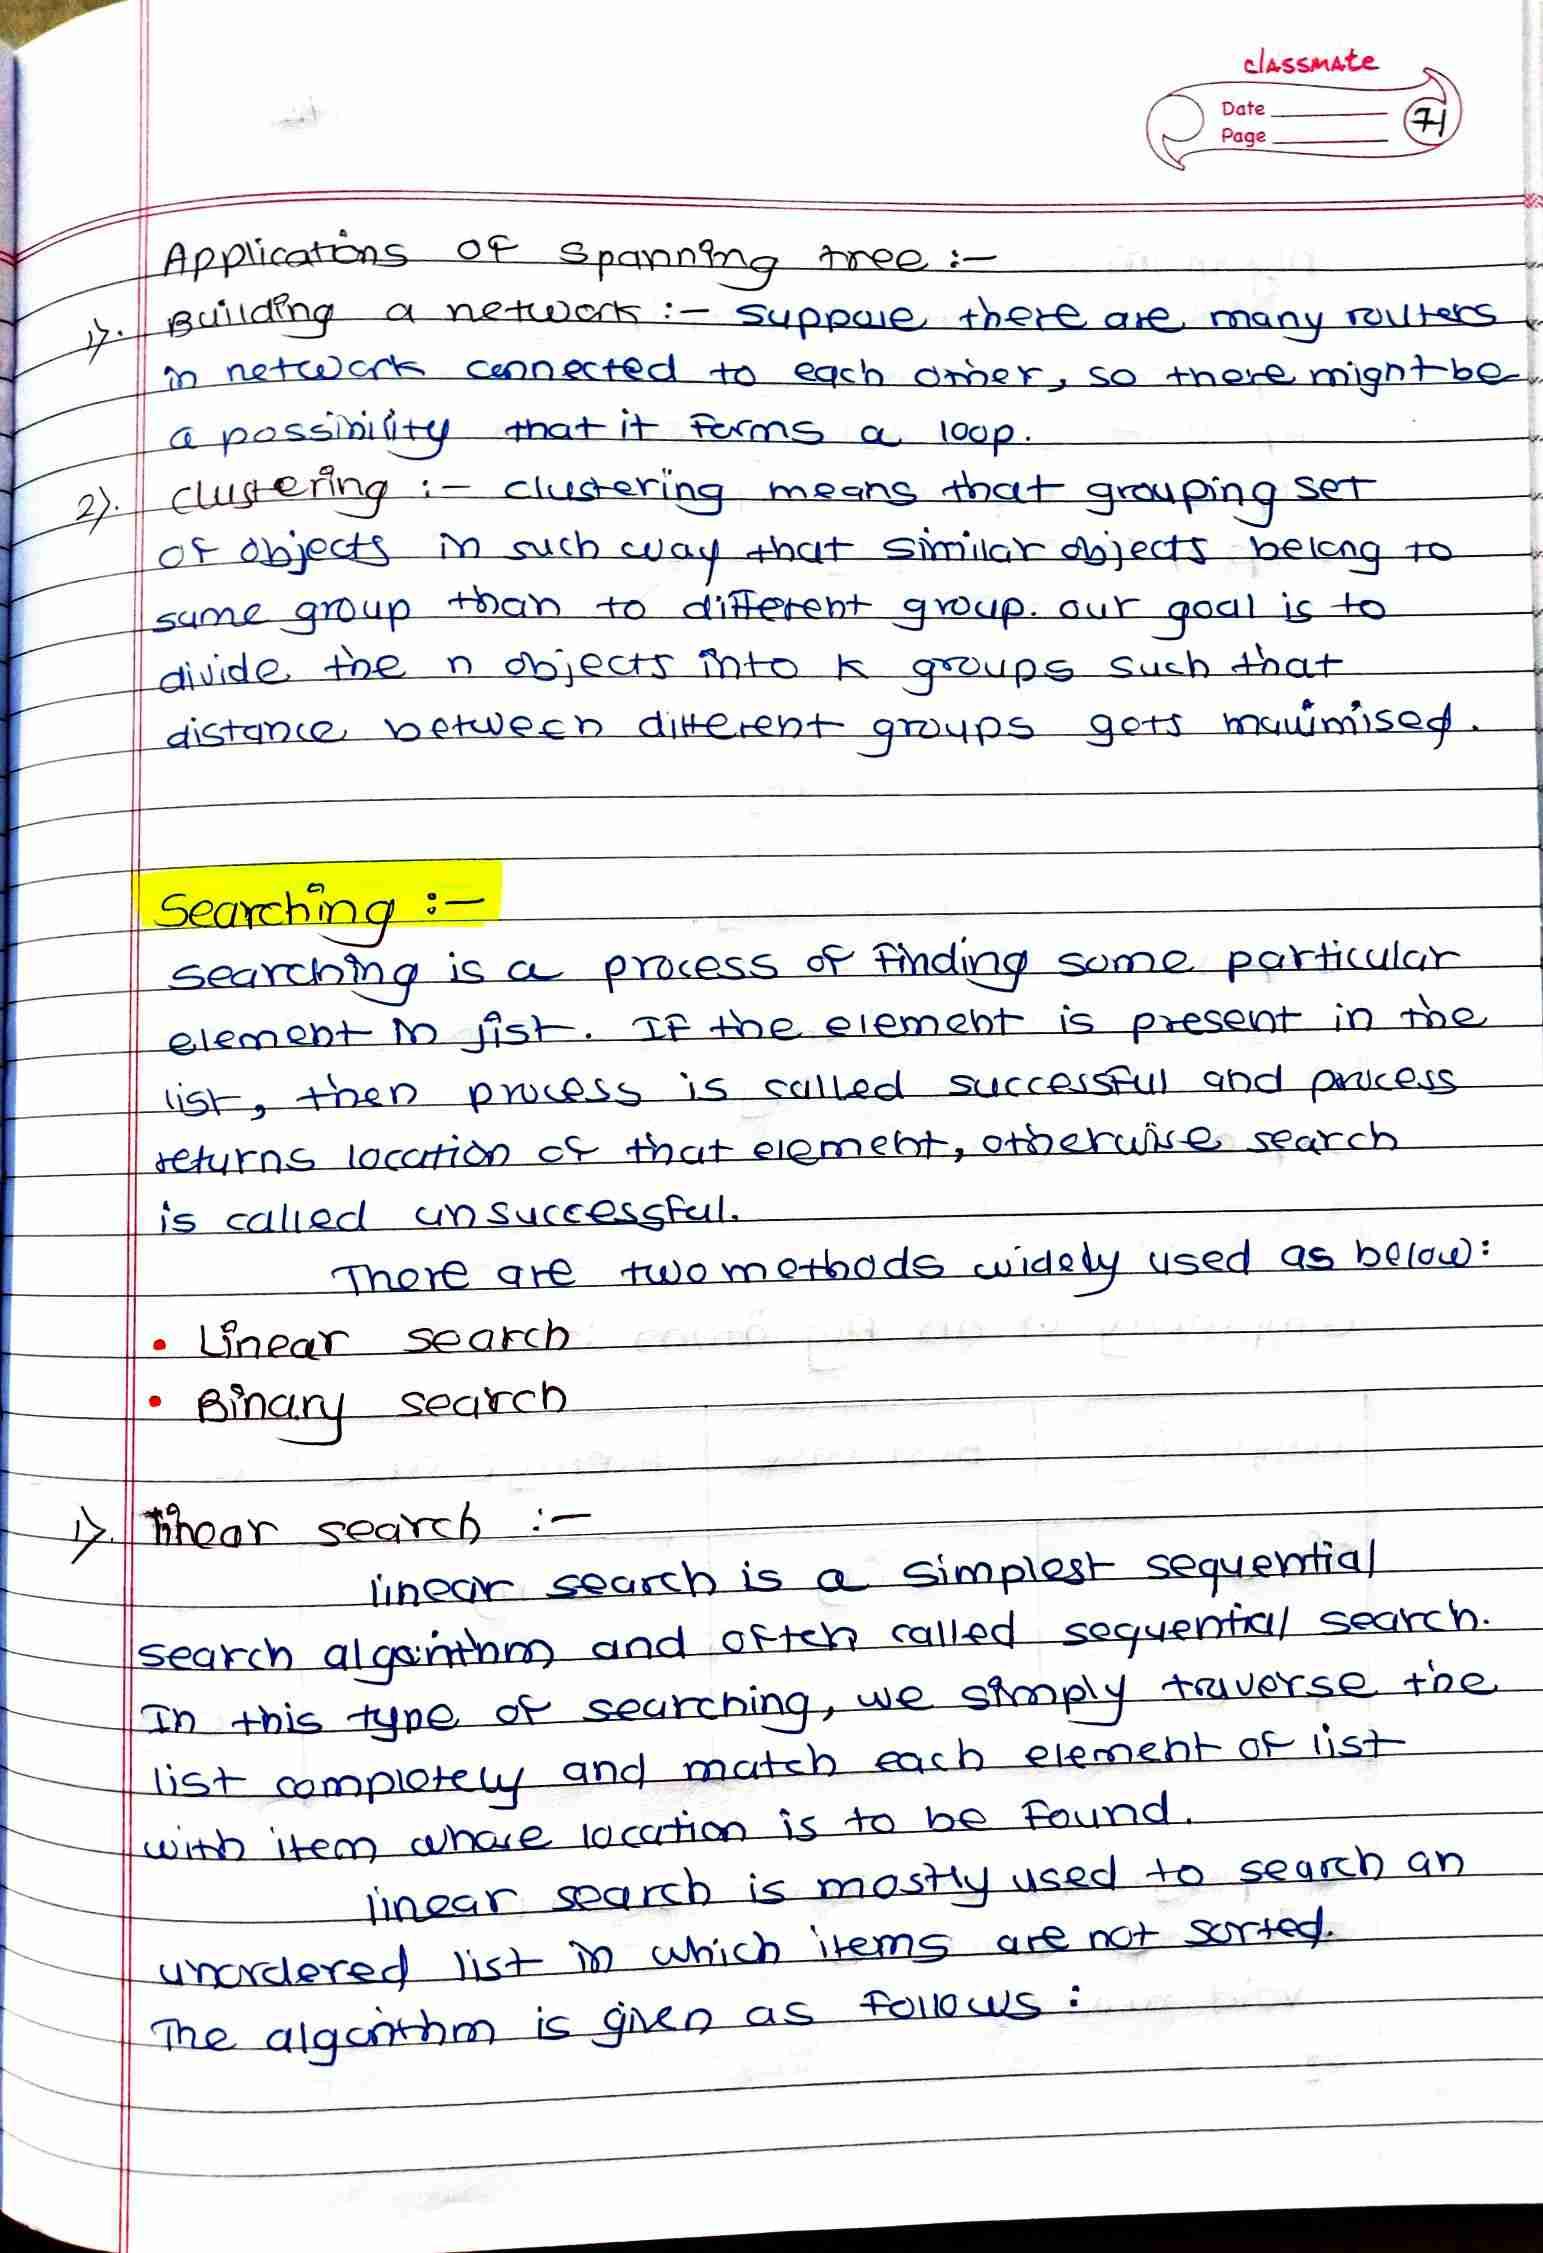 classmate
Date
Page
71
Applications of spanning tree :-
1). Building a network :- suppose there are many routers
in network connected to each other, so there might be
a possibility that it forms a loop.
2). clustering :- clustering means that grouping set
of objects in such way that similar objects belong to
same group than to different group. our goal is to
divide the n objects into k groups such that
distance between different groups gets maximised.
Searching :-
searching is a process of finding some particular
element in list. If the element is present in the
list, then process is called successful and process
returns location of that element, otherwise search
is called unsuccessful.
There are two methods widely used as below:
• Linear search
• Binary search
1). linear search :-
linear search is a simplest sequential
search algorithm and often called sequential search.
In this type of searching, we simply traverse the
list completely and match each element of list
with item whose location is to be found.
linear search is mostly used to search an
unordered list in which items are not sorted.
The algorithm is given as follows: